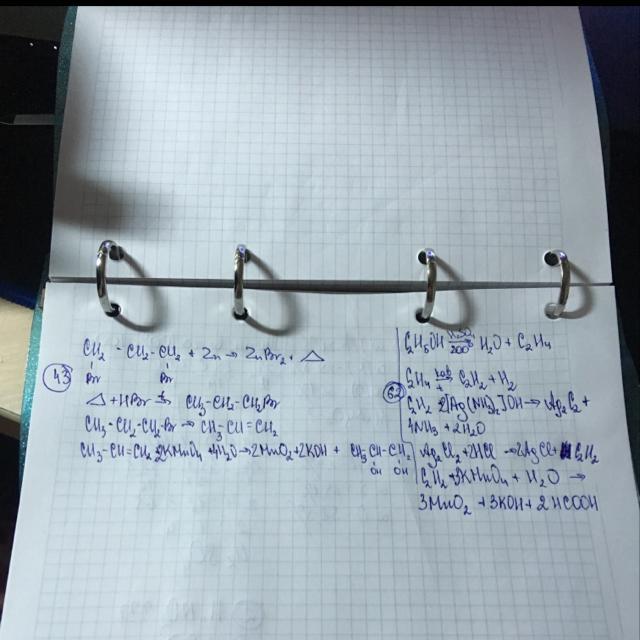 CH₂ - CH₂ - CH₂ + Zn → ZnBr₂ + △
Br Br
43
△ + HBr → CH₃-CH₂-CH₂Br
CH₃-CH₂-CH₂-Br → CH₃-CH=CH₂
CH₃-CH=CH₂ 2KMnO₄ + H₂O → 2MnO₂ + 2KOH + CH₃CH-CH₂
OH OH
C₂H₅OH 200° H₂O + C₂H₄
62
C₂H₄ → C₂H₂ + H₂
C₂H₂ 2[Ag(NH₃)₂]OH → Ag₂C₂ +
4NH₃ + 2H₂O
Ag₂C₂ + 2HCl → 2AgCl + C₂H₂
C₂H₂ + KMnO₄ + H₂O →
3MnO₂ + 3KOH + 2HCOOH